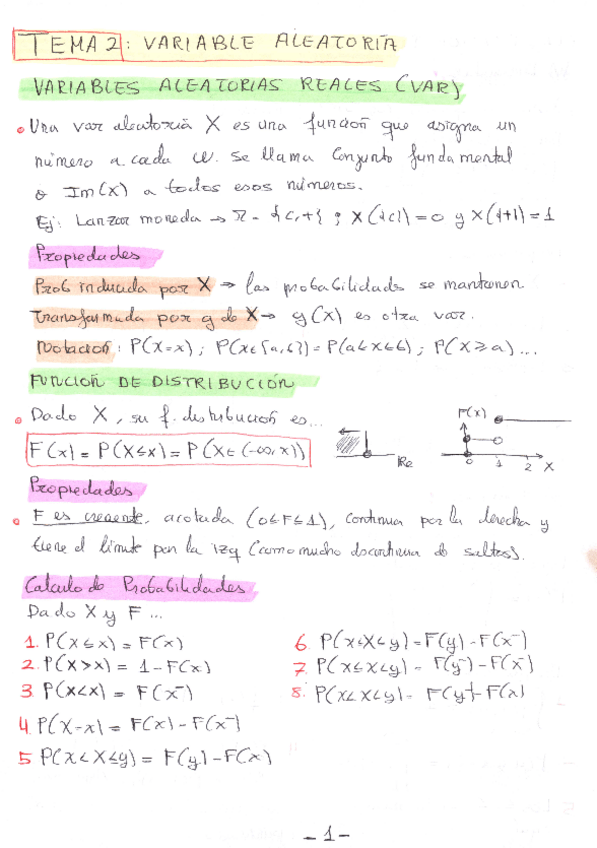 TEMA 2: VARIABLE ALEATORIA
VARIABLES ALEATORIAS REALES (VAR)
Una var aleatoria X es una función que asigna un
número a cada w. Se llama Conjunto fundamental
o Im(X) a todos esos números.
Ej: Lanzar moneda → Ω = {c,+} ; X({c}) = 0 y X({+}) = 1
Propiedades
Prob inducida por X → las probabilidads se mantienen
Transformada por g de X → g(X) es otra var.
Notación: P(X=x) ; P(X∈[a,b]) = P(a≤X≤b) ; P(X≥a)...
FUNCIÓN DE DISTRIBUCIÓN
Dado X, su f. distribución es...
F(x) = P(X≤x) = P(X∈(-∞,x))
Re
F(x)
0 1 2 X
Propiedades
F es creciente, acotada (0≤F≤1), continua por la derecha y
tiene el límite por la izq (como mucho discontinua de saltos).
Calculo de Probabilidades
Dado X y F ...
1. P(X≤x) = F(x)
2. P(X>x) = 1-F(x)
3. P(X<x) = F(x⁻)
4. P(X=x) = F(x) - F(x⁻)
5 P(x<X≤y) = F(y) - F(x)
6. P(x≤X≤y) = F(y) - F(x⁻)
7. P(x≤X<y) = F(y⁻) - F(x⁻)
8. P(x<X<y) = F(y⁻) - F(x)
- 1 -